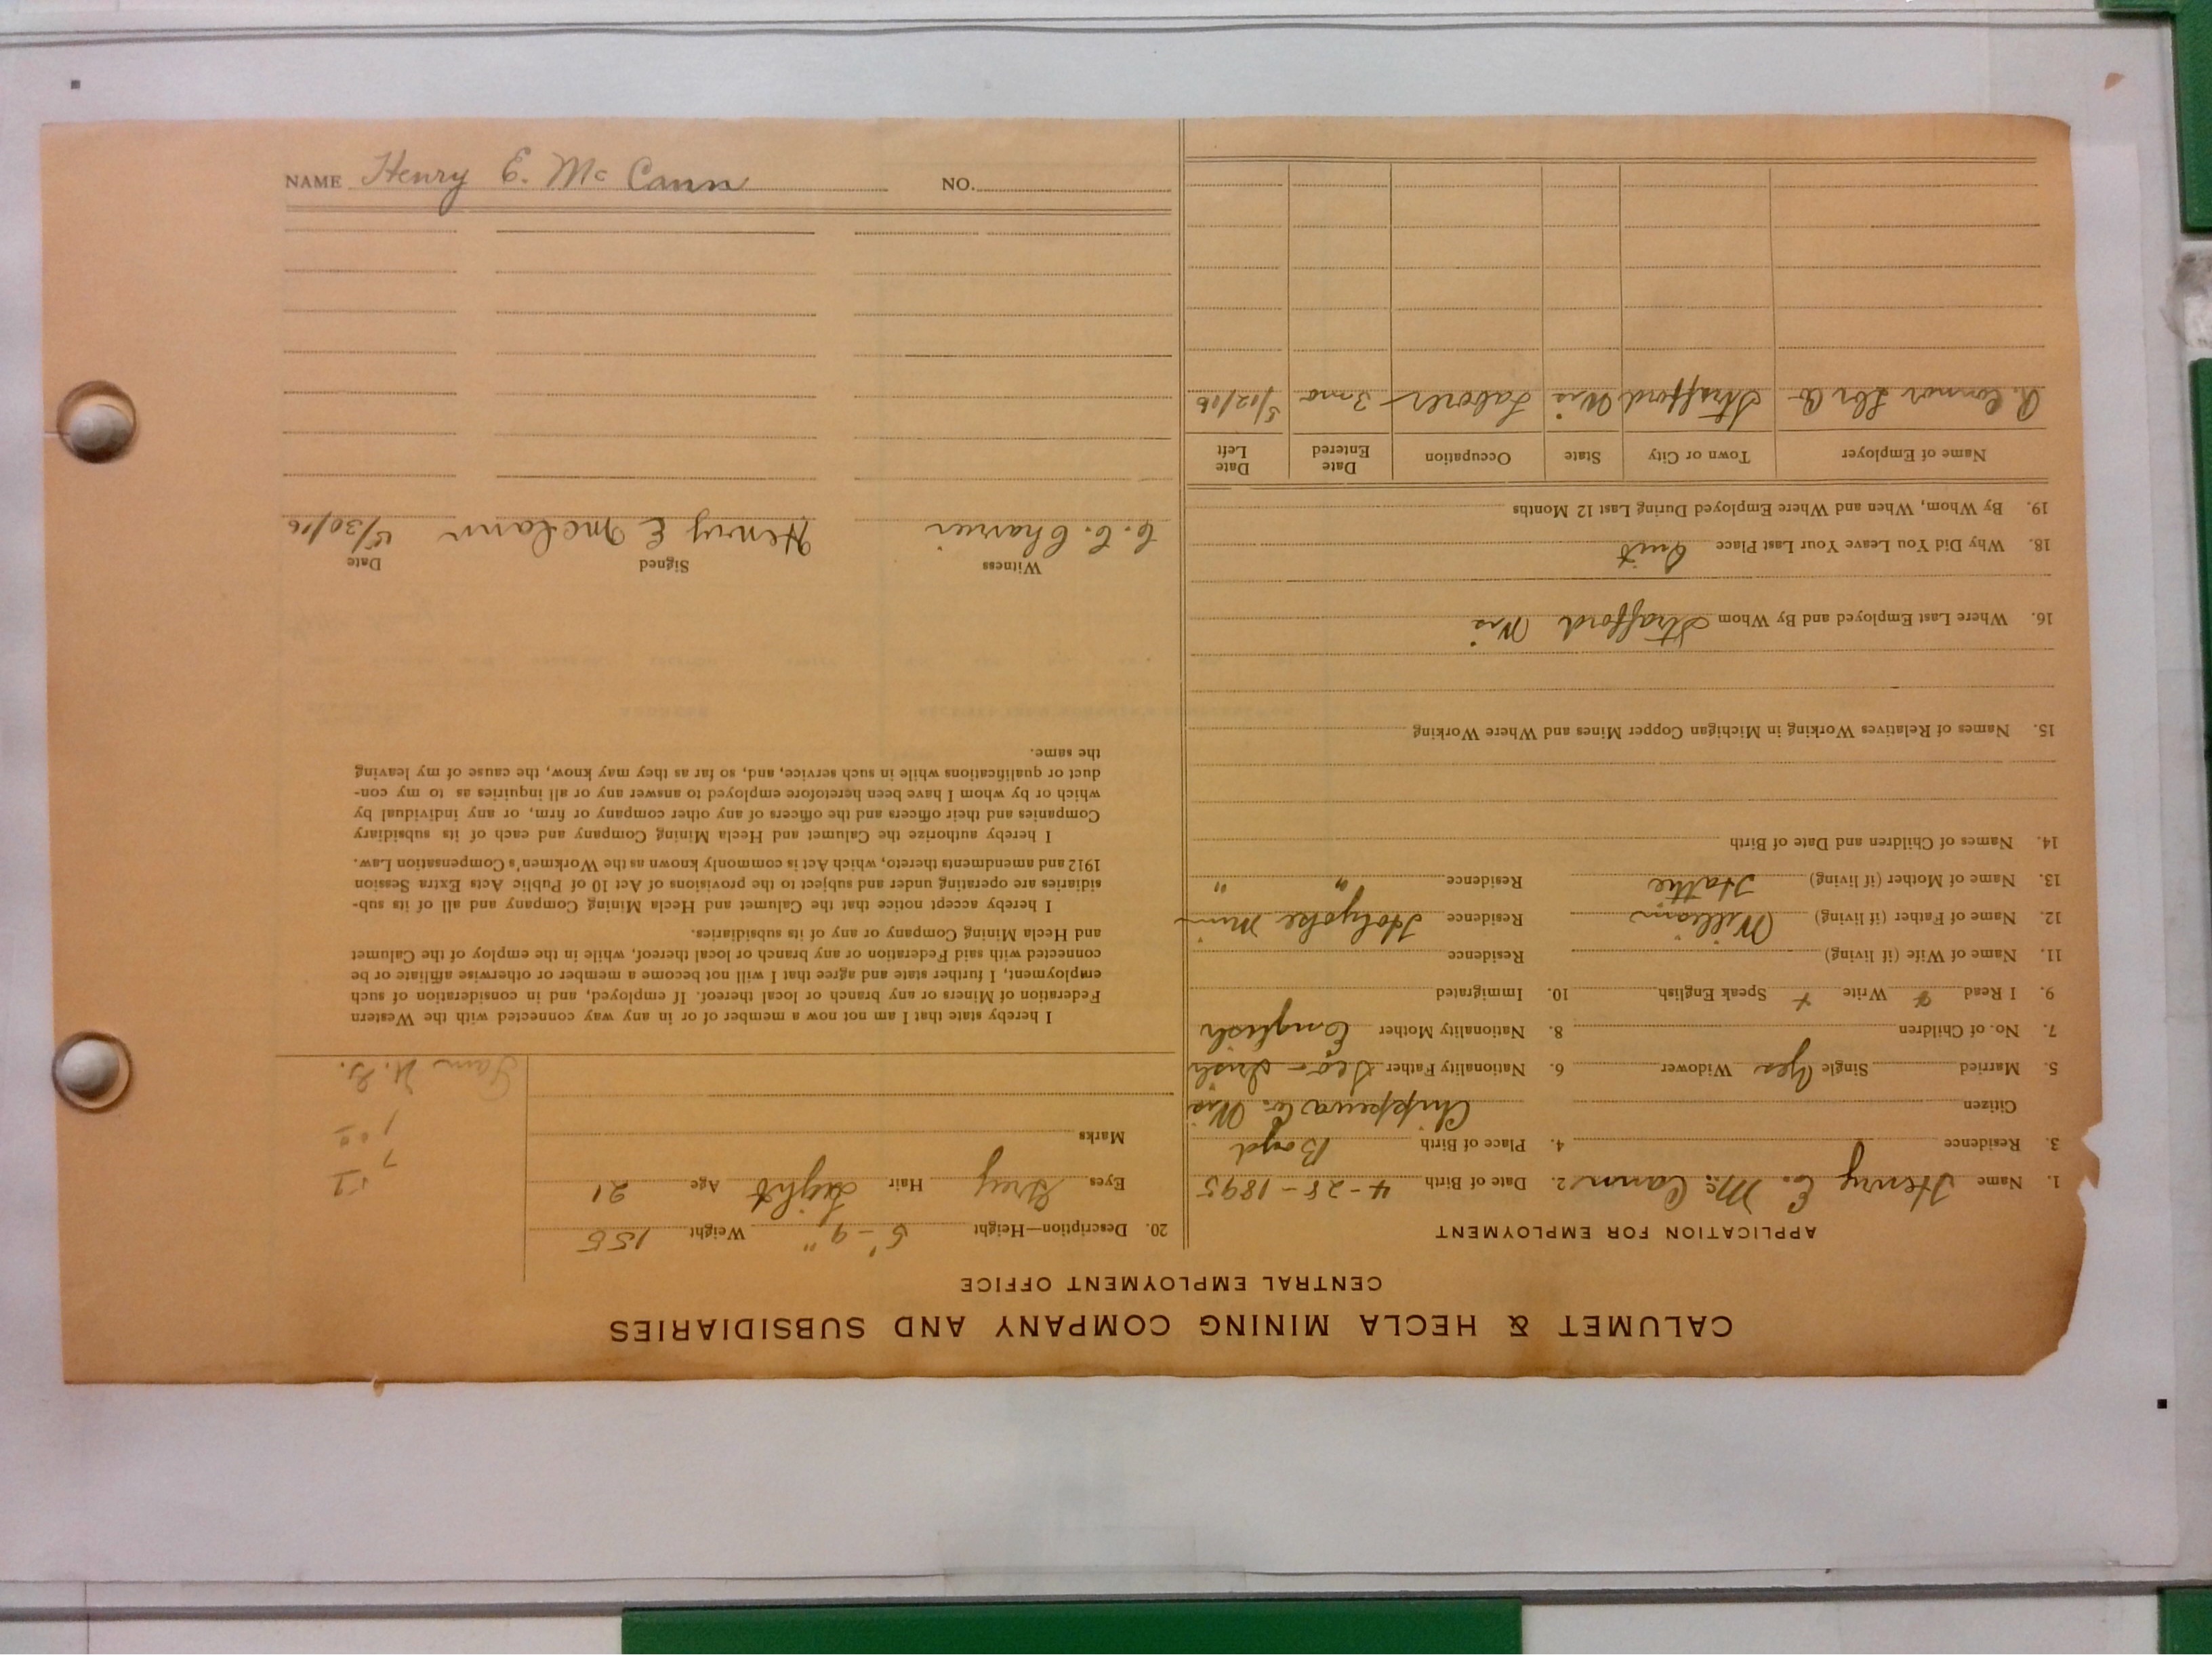 CALUMET & HECLA MINING COMPANY AND SUBSIDIARIES
CENTRAL EMPLOYMENT OFFICE
APPLICATION FOR EMPLOYMENT
1. Name Henry E. Mc Cann 2. Date of Birth 4-28-1895
3. Residence 4. Place of Birth Boyd
Citizen Chippewa Co. Wis
5. Married Single Yes Widower 6. Nationality Father Sco-Irish
7. No. of Children 8. Nationality Mother English
9. I Read Write Speak English 10. Immigrated
11. Name of Wife (if living) Residence
12. Name of Father (if living) William Residence Holyoke Minn
13. Name of Mother (if living) Hattie Residence " "
14. Names of Children and Date of Birth
15. Names of Relatives Working in Michigan Copper Mines and Where Working
16. Where Last Employed and By Whom Strafford Wis
18. Why Did You Leave Your Last Place Quit
19. By Whom, When and Where Employed During Last 12 Months
Name of Employer Town or City State Occupation Date Entered Date Left
R. Connor Lbr Co Strafford Wis Laborer 3 mo 5/12/16
20. Description—Height 5'-9" Weight 155
Eyes Grey Hair Light Age 21
Marks
I hereby state that I am not now a member of or in any way connected with the Western
Federation of Miners or any branch or local thereof. If employed, and in consideration of such
employment, I further state and agree that I will not become a member or otherwise affiliate or be
connected with said Federation or any branch or local thereof, while in the employ of the Calumet
and Hecla Mining Company or any of its subsidiaries.
I hereby accept notice that the Calumet and Hecla Mining Company and all of its sub-
sidiaries are operating under and subject to the provisions of Act 10 of Public Acts Extra Session
1912 and amendments thereto, which Act is commonly known as the Workmen's Compensation Law.
I hereby authorize the Calumet and Hecla Mining Company and each of its subsidiary
Companies and their officers and the officers of any other company or firm, or any individual by
which or by whom I have been heretofore employed to answer any or all inquiries as to my con-
duct or qualifications while in such service, and, so far as they may know, the cause of my leaving
the same.
Witness Signed Date
C. C. Charrier Henry E McCann 5/30/16
NAME Henry E. Mc Cann NO.